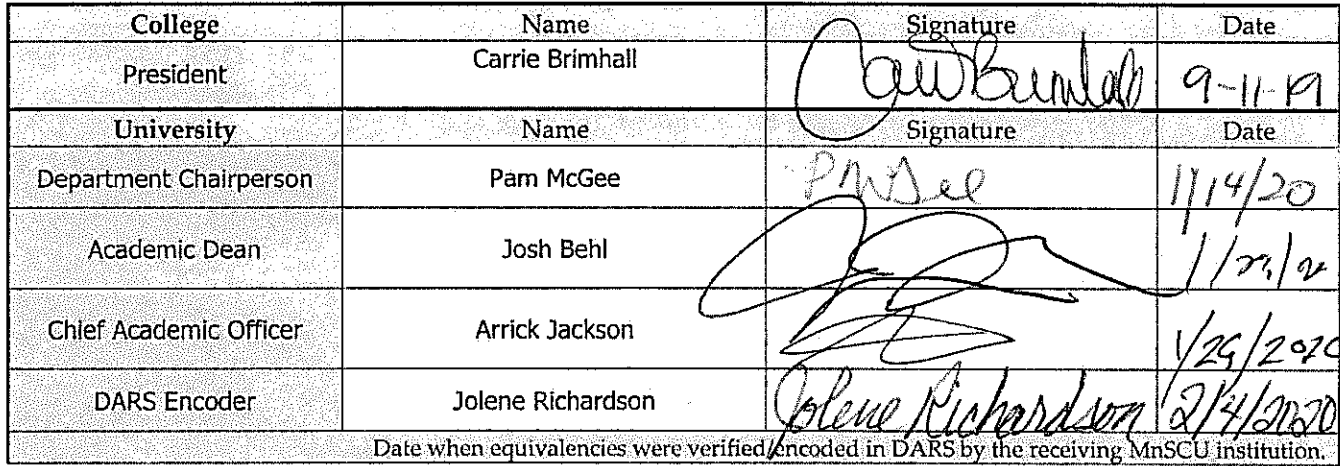 College Name Signature Date
President Carrie Brimhall 9-11-19
University Name Signature Date
Department Chairperson Pam McGee PMcGee 1/14/20
Academic Dean Josh Behl
Chief Academic Officer Arrick Jackson 1/29/2020
DARS Encoder Jolene Richardson Jolene Richardson 2/4/2020
Date when equivalencies were verified/encoded in DARS by the receiving MnSCU institution.